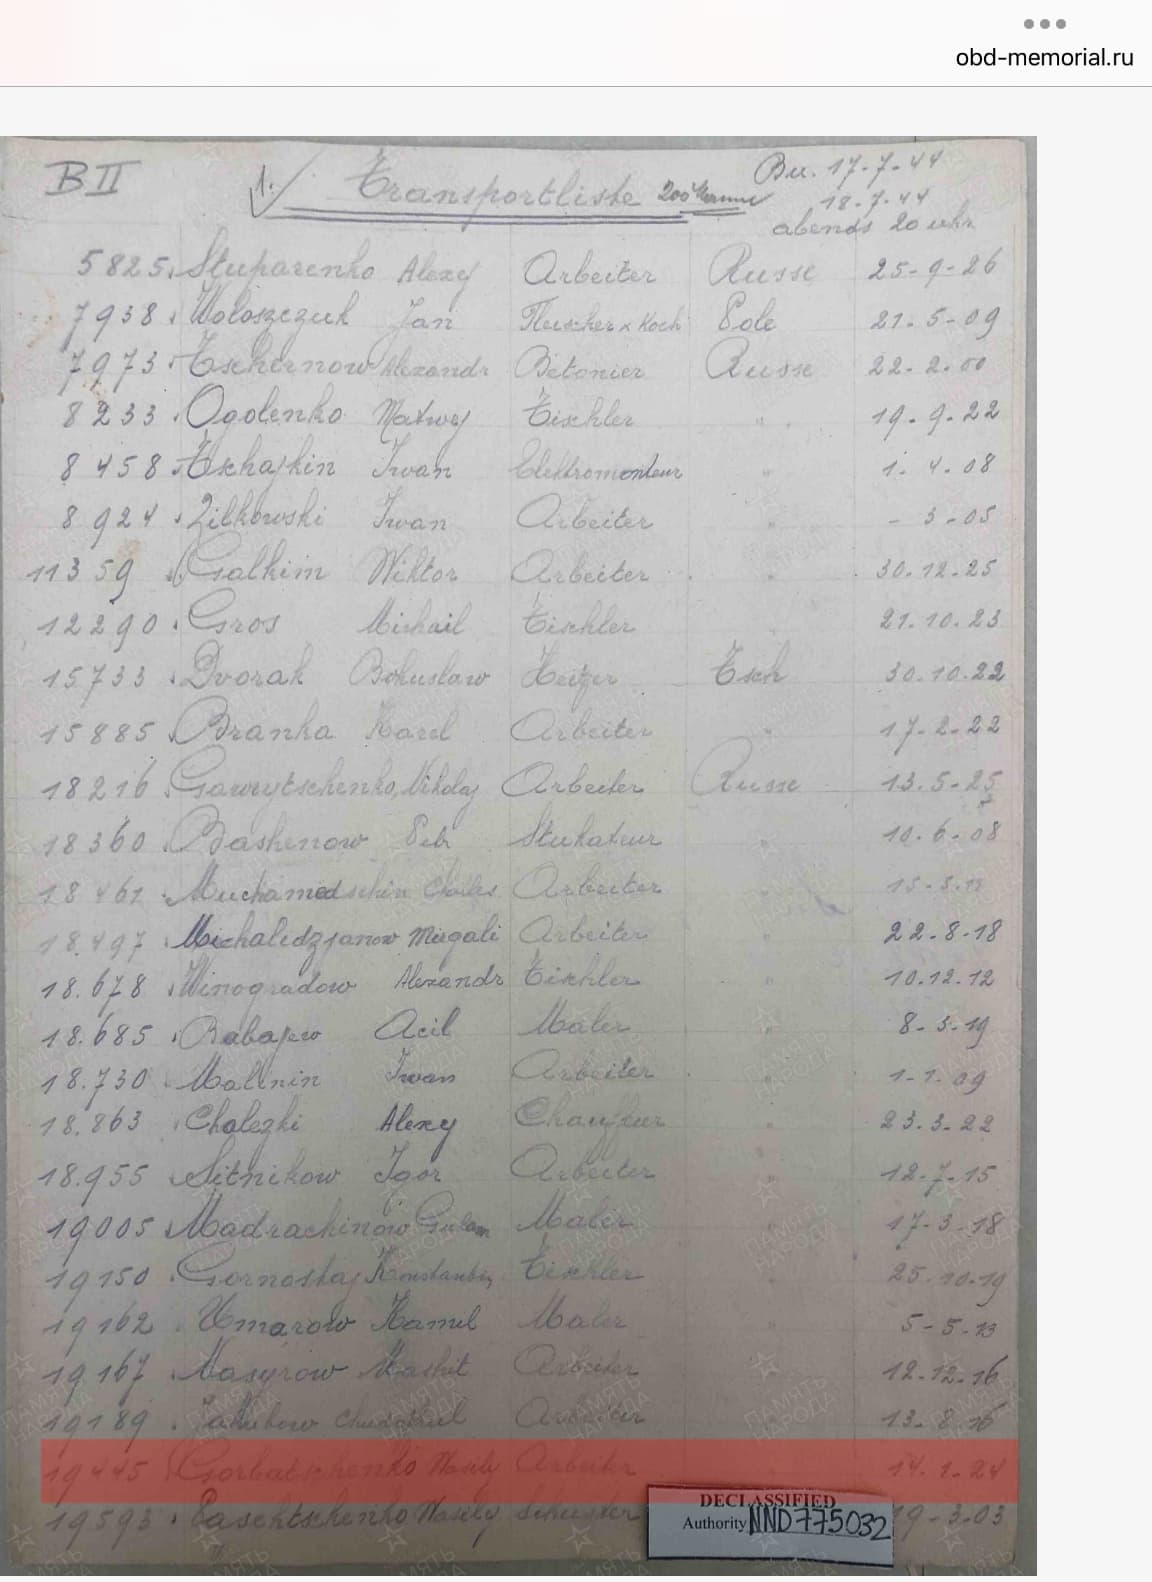 obd-memorial.ru
B II
1. Transportliste 200
Bu. 17-7-44
18-7-44
abends 20 uhr
5825 Stuparenko Alexy Arbeiter Russe 25-9-26
7938 Woloszczuk Jan Fleischer x Koch Pole 21.5-09
7973 Tschernow Alexandr Betonier Russe 22-2.00
8233 Ogolenko Matwej Tischler " 19.9.22
8458 Tschajkin Iwan Elektromonteur " 1.4.08
8924 Zilkowski Iwan Arbeiter " - 3-05
11359 Galkim Wiktor Arbeiter " 30.12.25
12290 Gros Michail Tischler 21.10.23
15733 Dvorak Bohuslaw Heizer Tsch 30.10.22
15885 Branka Karel Arbeiter " 17-2-22
18216 Gawrytschenko, Nikolaj Arbeiter Russe 13.5-25
18360 Bashenow Petr Stukateur " 10.6-08
18461 Muchamedschin Arbeiter "
18.497 Michaledzjanow Mirgali Arbeiter " 22.8-18
18.678 Winogradow Alexandr Tischler " 10.12.12
18.685 Babajew Acil Maler " 8-3-19
18.730 Malinin Iwan Arbeiter " 1-1.09
18.863 Cholezki Alexy Chauffeur " 23.3-22
18.955 Sitnikow Igor Arbeiter " 12-7-15
19005 Madrachinow Gulam Maler " 17-3-18
19150 Gornostaj Konstantin Tischler " 25.10.19
19162 Umarow Kamil Maler " 5-5.13
19167 Nasyrow Mashit Arbeiter " 12.12.16
19189 Jakubow Arbeiter 13.8.16
19445 Gorbatschenko Wasily Arbeiter " 14.1.24
19593 Paschtschenko Wasily Schuster 19-3-03
DECLASSIFIED
Authority NND775032